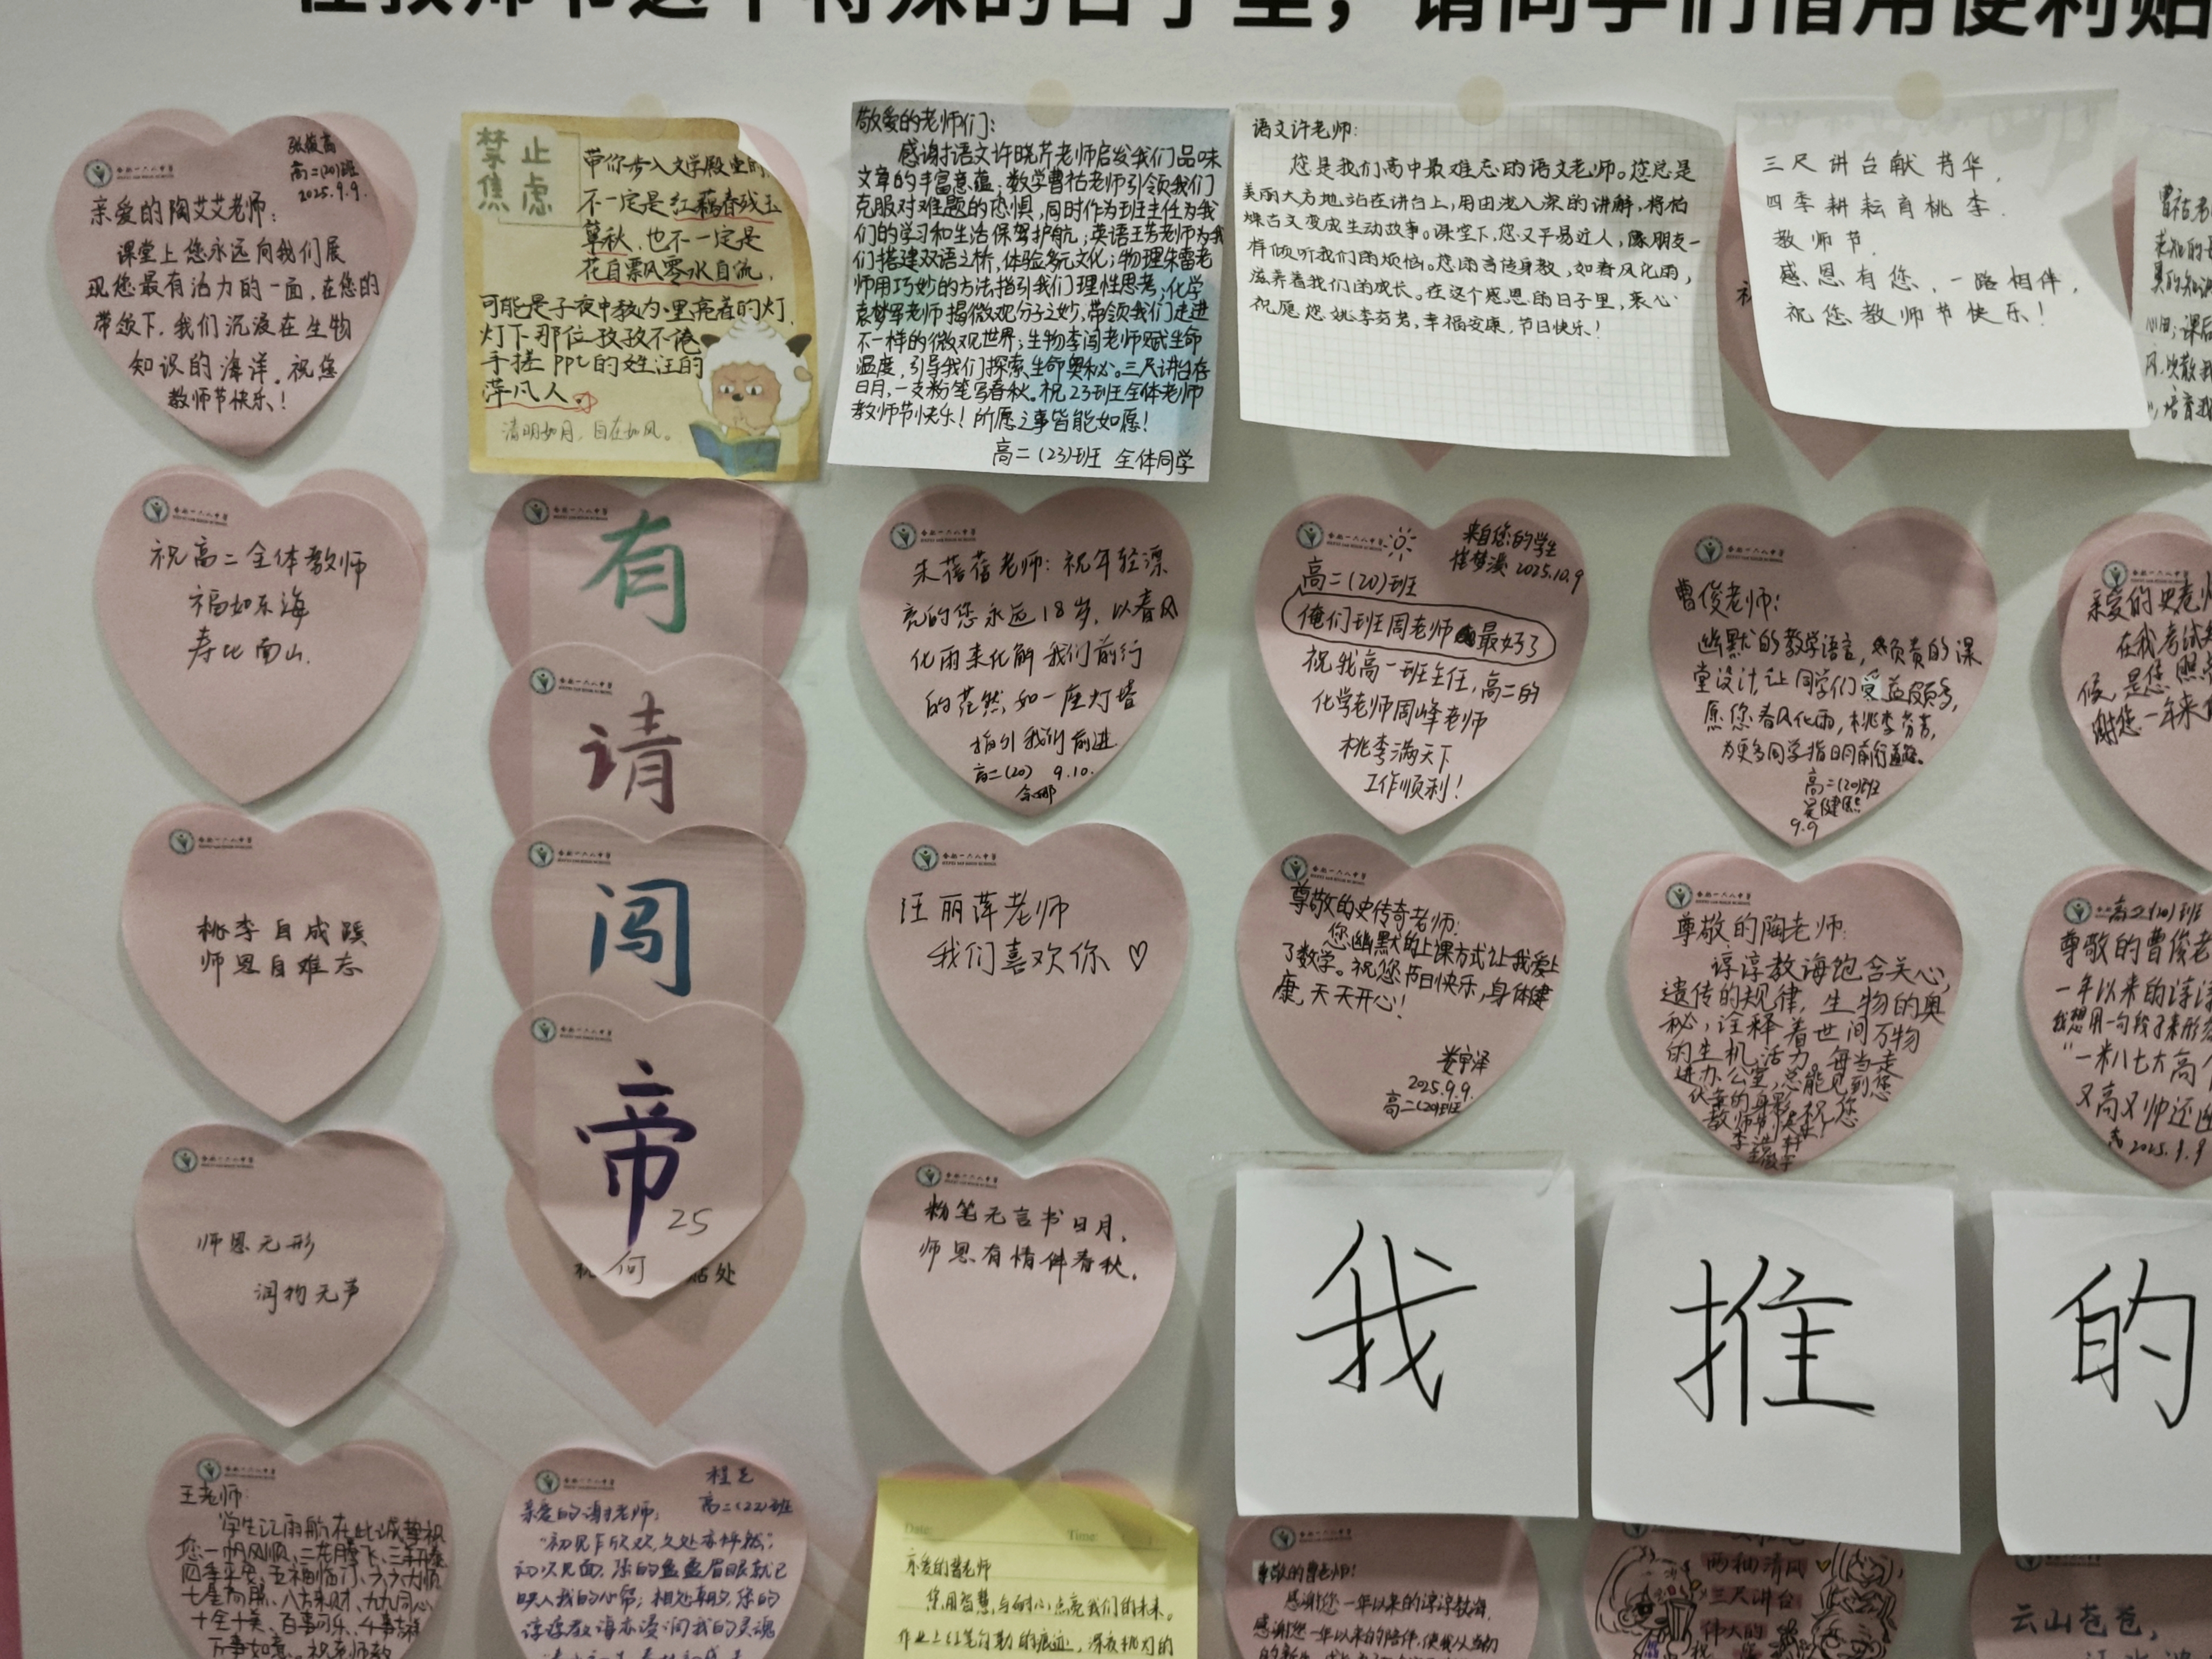 在教师节这个特殊的日子里，请同学们借用便利贴
张俊高
高二(20)班
2025.9.9.
亲爱的陶艾艾老师：
课堂上您永远向我们展
现您最有活力的一面，在您的
带领下，我们沉浸在生物
知识的海洋。祝您
教师节快乐！
禁止
焦虑
带你步入文学殿堂的，
不一定是红藕香残玉
簟秋，也不一定是
花自飘零水自流，
可能是子夜中教内里亮着的灯
灯下那位孜孜不倦
手搓PPt的姓汪的
萍凡人。
清明如月，自在如风。
敬爱的老师们：
感谢语文许晓芹老师启发我们品味
文章的丰富意蕴；数学曹祜老师引领我们
克服对难题的恐惧，同时作为班主任为我
们的学习和生活保驾护航；英语王芳老师为我
们搭建双语之桥，体验多元文化；物理朱雷老
师用巧妙的方法指引我们理性思考；化学
袁梦雪老师揭微观分子之妙，带领我们走进
不一样的微观世界；生物李闯老师赋生命
温度，引导我们探索生命奥秘。三尺讲台存
日月，一支粉笔写春秋。祝23班全体老师
教师节快乐！所愿之事皆能如愿！
高二(23)班 全体同学
语文许老师：
您是我们高中最难忘的语文老师。您总是
美丽大方地站在讲台上，用由浅入深的讲解，将枯
燥古文变成生动故事。课堂下，您又平易近人，像朋友一
样倾听我们的烦恼。您用言传身教，如春风化雨，
滋养着我们的成长。在这个感恩的日子里，衷心
祝愿您桃李芬芳，幸福安康，节日快乐！
三尺讲台献芳华，
四季耕耘育桃李.
教师节.
感恩有您，一路相伴，
祝您教师节快乐！
祝高二全体教师
福如东海
寿比南山.
有
请
闯
帝
25
何
贴处
朱蓓蓓老师：祝年轻漂
亮的您永远18岁，以春风
化雨来化解我们前行
的茫然，如一座灯塔
指引我们前进
高二(20) 9.10.
来自您的学生
2025.10.9
高二(20)班
俺们班周老师最好了
祝我高一班主任，高二的
化学老师周峰老师
桃李满天下
工作顺利！
曹俊老师：
幽默的教学语言，负责的课
堂设计，让同学们受益颇多，
愿您春风化雨，桃李芬芳，
为更多同学指明前行道路。
高二(20)班
吴健熙
9.9
亲爱的史老师
在我考试
候，是您
谢您一年来
桃李自成蹊
师恩自难忘
汪丽萍老师
我们喜欢你♡
尊敬的史传奇老师：
您幽默的上课方式让我爱上
了数学。祝您节日快乐，身体健
康，天天开心！
娄宇泽
2025.9.9.
高二(20)班
尊敬的陶老师：
谆谆教诲饱含关心，
遗传的规律，生物的奥
秘，诠释着世间万物
的生机活力。每当走
进办公室，总能见到您
伏案的身影，祝您
教师节快乐！
高二(20)班
尊敬的曹俊老
一年以来的谆谆
我想用一句我
“一米八七大高个
又高又帅还
2025.9.9
师恩无形
润物无声
粉笔无言书日月，
师恩有情伴春秋。
我
推
的
王老师：
学生江雨航在此诚挚祝
您一帆风顺、二龙腾飞、三羊开泰
四季平安、五福临门、六六大顺
七星高照、八方来财、九九同心
十全十美、百事可乐、千事吉祥
万事如意。祝老师教
程
高二(22)班
亲爱的谢老师：
“初见乍欢，久处亦怦然”
初次见面，您的盈盈眉眼就已
映入我的心帘；相处期间，您的
谆谆教诲亦浸润我的灵魂
Date:
Time:
亲爱的曹老师
您用智慧与耐心点亮我们的未来。
作业上红笔勾勒的痕迹，深夜批阅的
尊敬的曹老师：
感谢您一年以来的谆谆教诲，
感谢您一年以来的陪伴，使我从当初
两袖清风
三尺讲台
伟大的
云山苍苍，